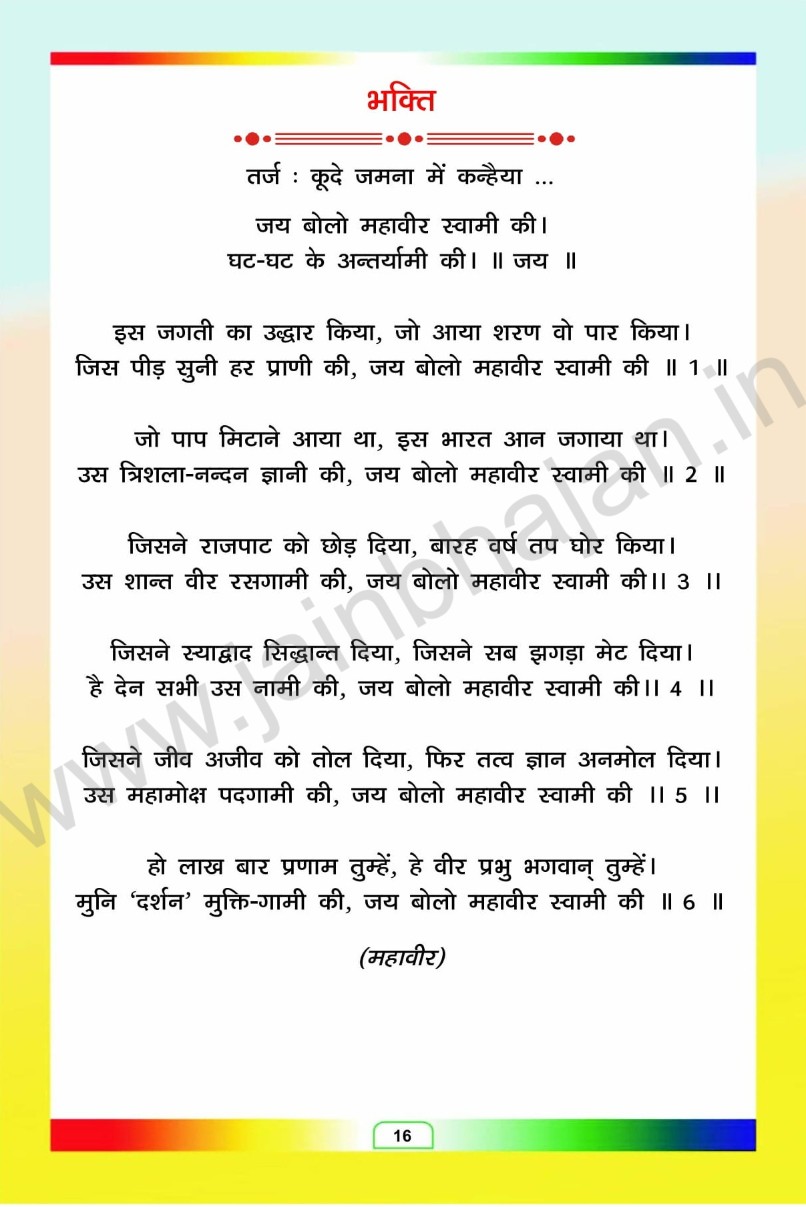 भक्ति
तर्ज : कूदे जमना में कन्हैया ...
जय बोलो महावीर स्वामी की।
घट-घट के अन्तर्यामी की। ॥ जय ॥
इस जगती का उद्धार किया, जो आया शरण वो पार किया।
जिस पीड़ सुनी हर प्राणी की, जय बोलो महावीर स्वामी की ॥ 1 ॥
जो पाप मिटाने आया था, इस भारत आन जगाया था।
उस त्रिशला-नन्दन ज्ञानी की, जय बोलो महावीर स्वामी की ॥ 2 ॥
जिसने राजपाट को छोड़ दिया, बारह वर्ष तप घोर किया।
उस शान्त वीर रसगामी की, जय बोलो महावीर स्वामी की।। 3 ।।
जिसने स्याद्वाद सिद्धान्त दिया, जिसने सब झगड़ा मेट दिया।
है देन सभी उस नामी की, जय बोलो महावीर स्वामी की।। 4 ।।
जिसने जीव अजीव को तोल दिया, फिर तत्व ज्ञान अनमोल दिया।
उस महामोक्ष पदगामी की, जय बोलो महावीर स्वामी की ।। 5 ।।
हो लाख बार प्रणाम तुम्हें, हे वीर प्रभु भगवान् तुम्हें।
मुनि ‘दर्शन’ मुक्ति-गामी की, जय बोलो महावीर स्वामी की ॥ 6 ॥
(महावीर)
16
www.jainbhajan.in